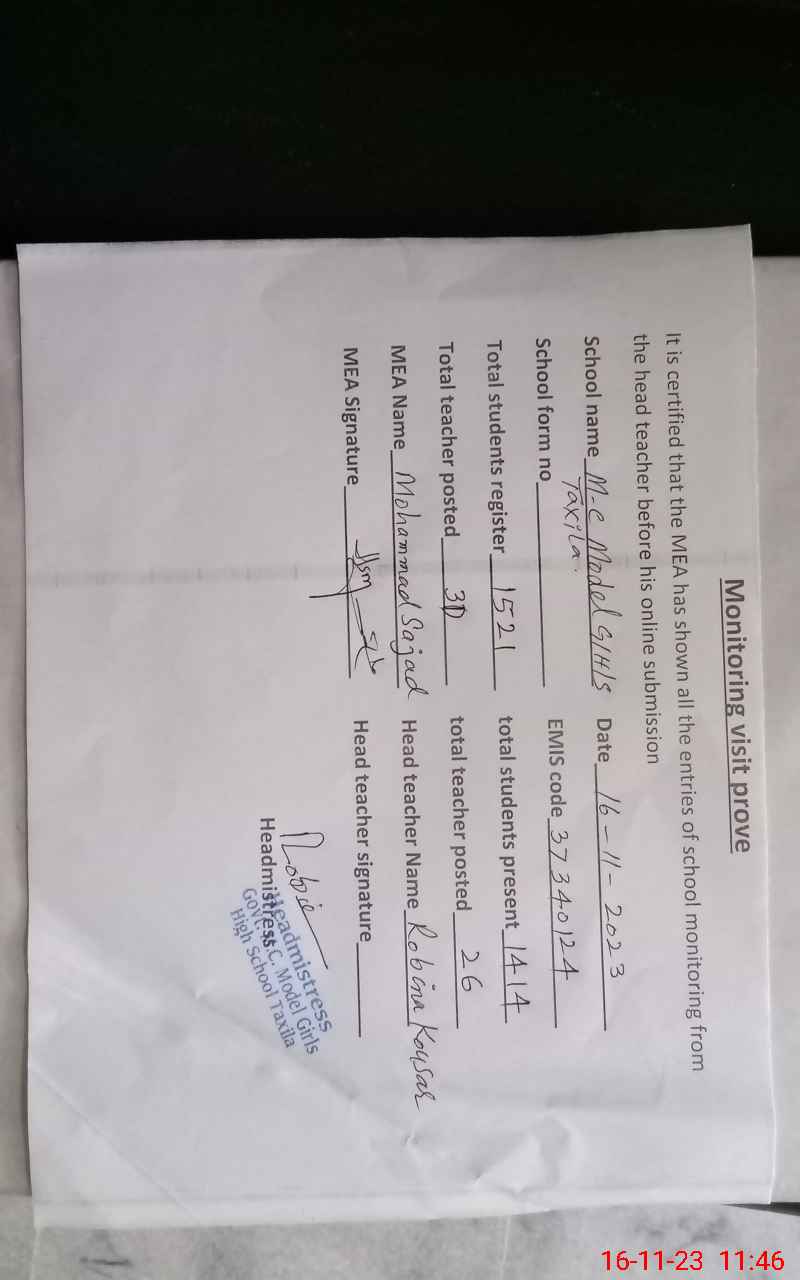 Monitoring visit prove
It is certified that the MEA has shown all the entries of school monitoring from
the head teacher before his online submission
School name M-C Model G/H/S Date 16-11-2023
Taxila.
School form no EMIS code 37340124
Total students register 1521 total students present 1414
Total teacher posted 30 total teacher posted 26
MEA Name Mohammad Sajad Head teacher Name Robina Kousar
MEA Signature Head teacher signature
Headmistress
Headmistress
Govt. M.C. Model Girls
High School Taxila
16-11-23 11:46